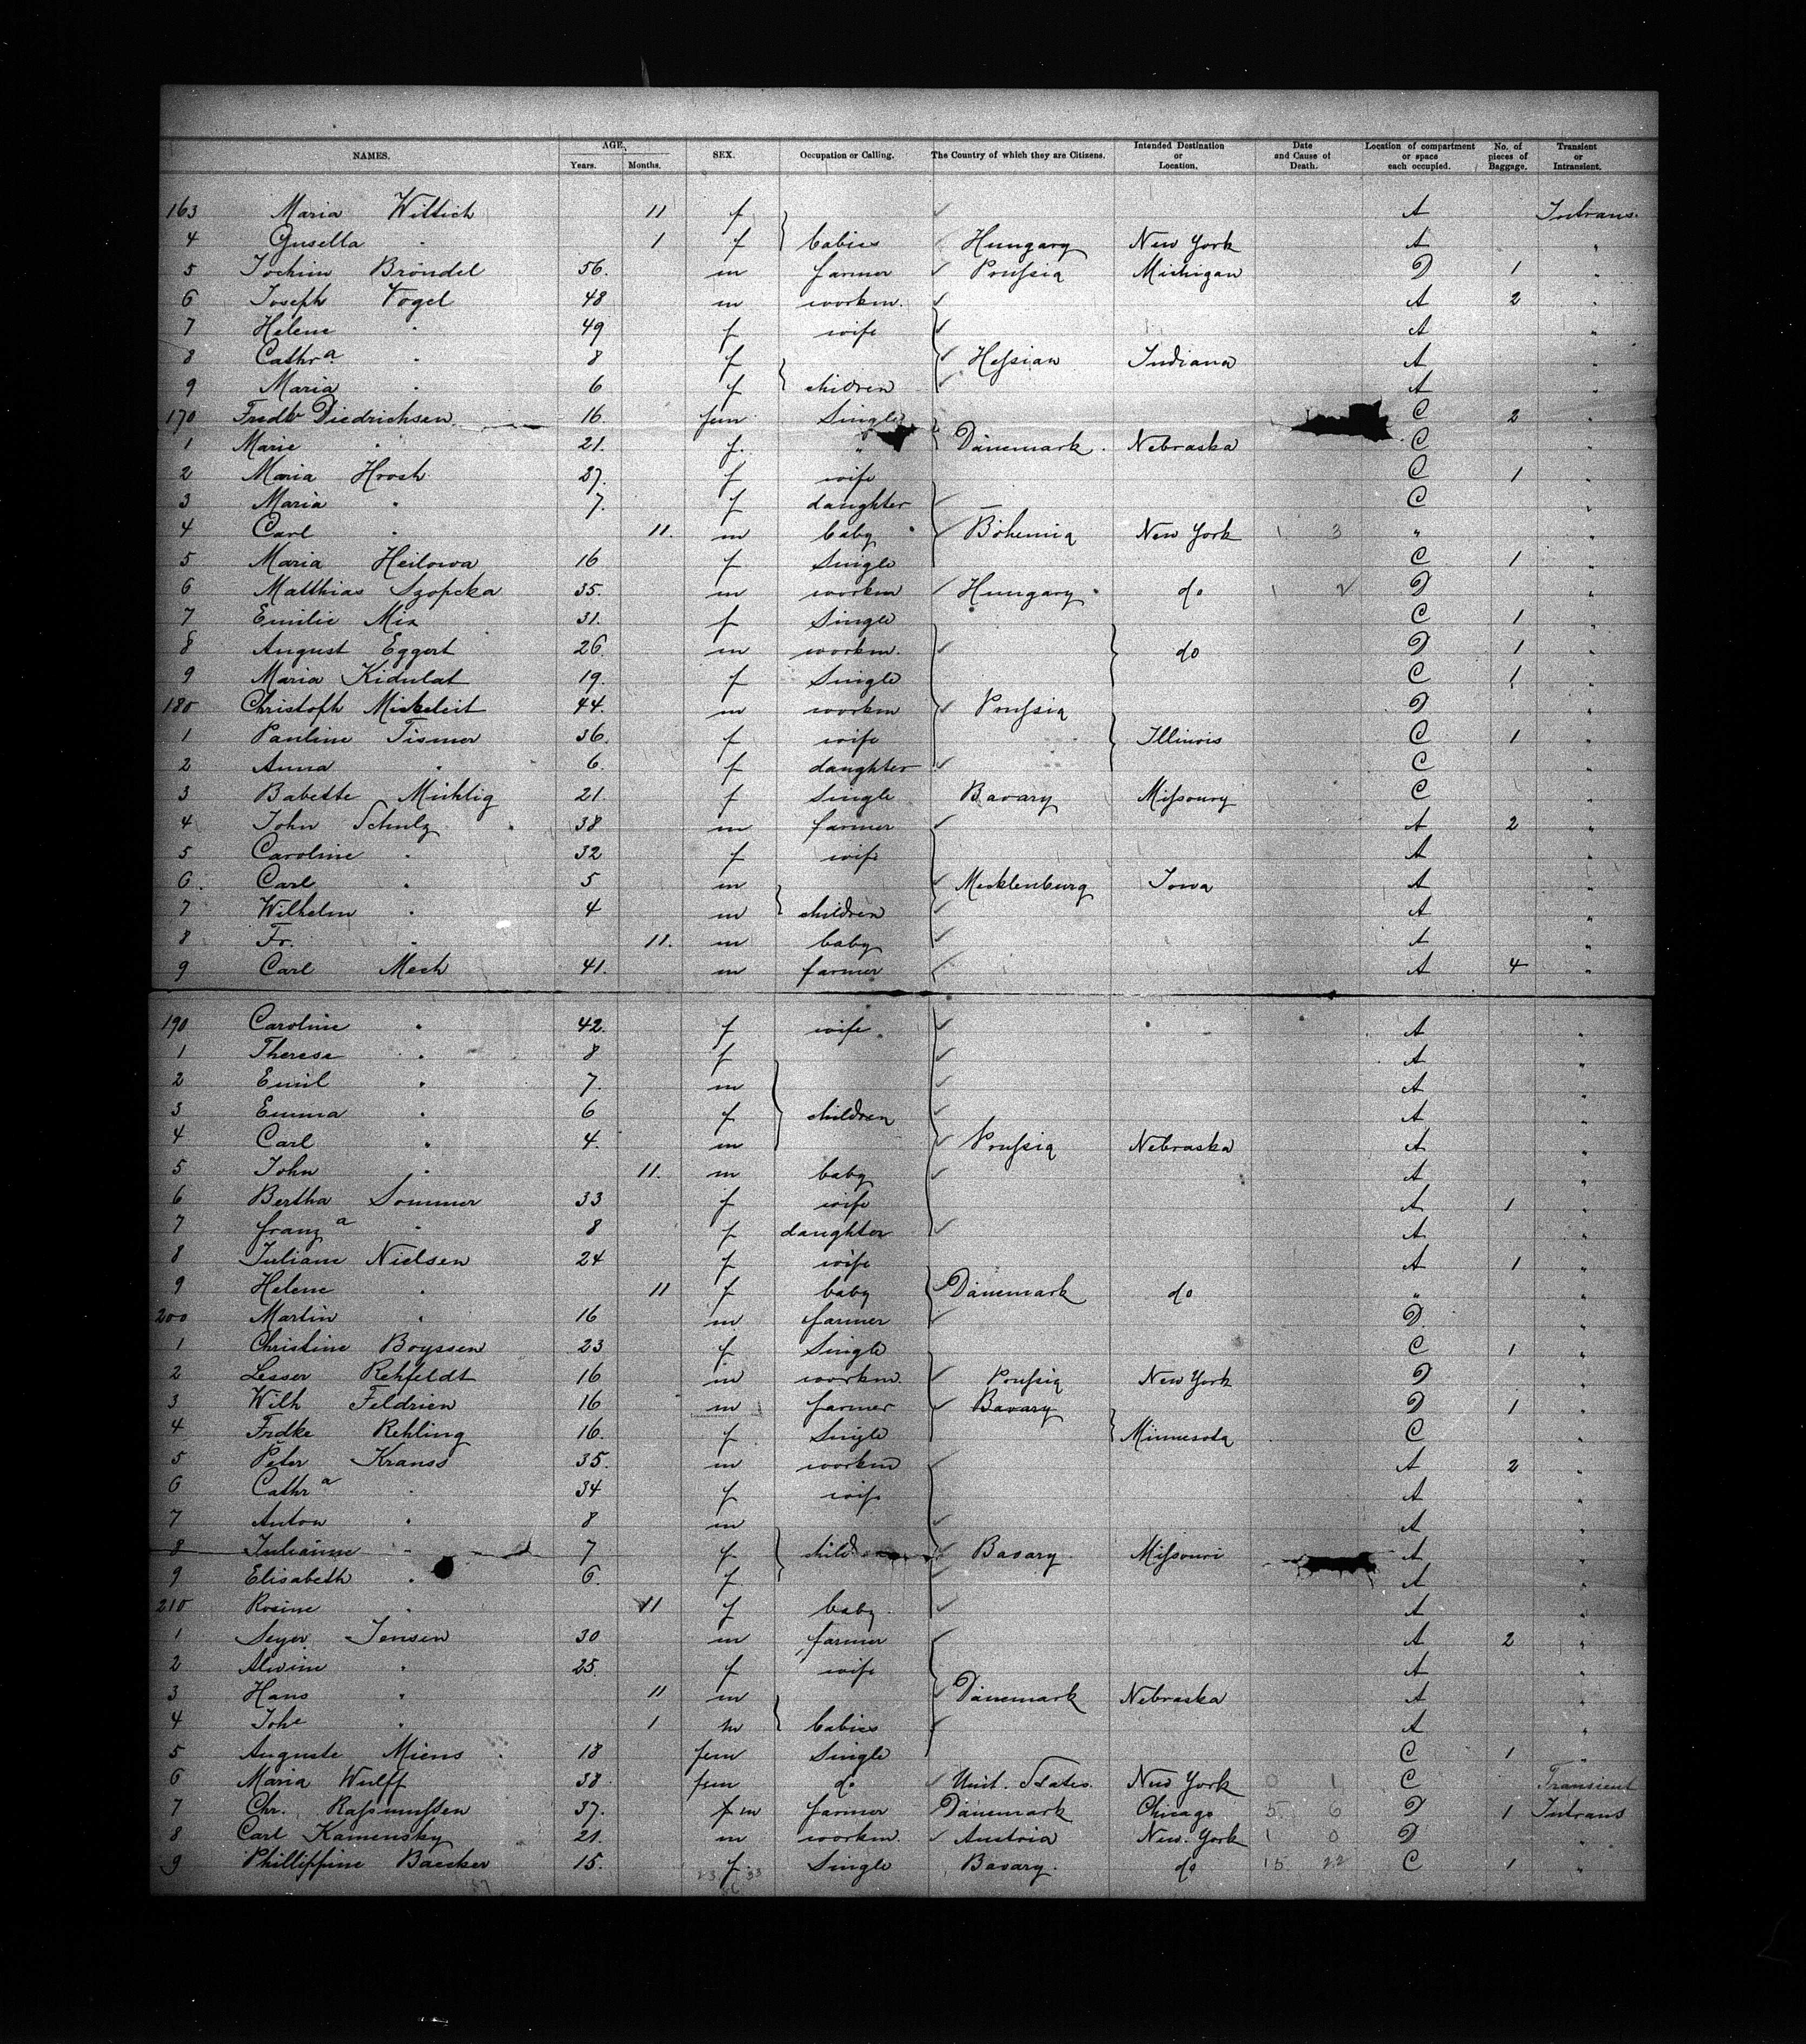 NAMES. AGE, Years. Months. SEX. Occupation or Calling. The Country of which they are Citizens. Intended Destination or Location. Date and Cause of Death. Location of compartment or space each occupied. No. of pieces of Baggage. Transient or Intransient.
163 Maria Wittich 11 f A Intrans.
4 Gusella " 1 f babies Hungary New York A "
5 Jochim Bröndel 56. m farmer Prussia Michigan D 1 "
6 Joseph Vogel 48 m workm. A 2 "
7 Helene " 49 f wife A "
8 Cathra " 8 f Hessian Indiana A "
9 Maria " 6 f children A "
170 Diedrichsen 16. fem Single C 2 "
1 Marie " 21. f. " Dänemark. Nebraska C "
2 Maria Hrosh 27. f wife C 1 "
3 Maria " 7. f daughter C "
4 Carl " 11. m baby Böhemia New York 1 3 " "
5 Maria Heilowa 16 f Single C 1 "
6 Matthias Szopcka 35. m workm Hungary do 1 2 D "
7 Emilie Mix 31. f Single C 1 "
8 August Eggert 26 m workm. do D 1 "
9 Maria Kidulat 19. f Single C 1 "
180 Christoph Mickeleit 44. m workm Prussia D "
1 Pauline Tismer 36. f wife Illinois C 1 "
2 Anna " 6. f daughter C "
3 Babette Michlig 21. f Single Bavary Missoury C "
4 John Schulz 38 m farmer A 2 "
5 Caroline " 32 f wife A "
6. Carl " 5 m Mecklenburg Iowa A "
7 Wilhelm " 4 m children A "
8 Fr. " 11. m baby A "
9 Carl Mech 41. m farmer A 4 "
190 Caroline " 42. f wife A "
1 Therese " 8 f A "
2 Emil " 7. m A "
3 Emma " 6 f children A "
4 Carl " 4. m Prussia Nebraska A "
5 John " 11. m baby A "
6 Bertha Sommer 33 f wife A 1 "
7 Franza " 8 f daughter A "
8 Juliane Nielsen 24 f wife A 1 "
9 Helene " 11 f baby Dänemark do " "
200 Martin " 16 m farmer D. "
1 Christine Boyssen 23 f Single C 1 "
2 Lesser Rehfeldt 16 m workm. Prussia New York D "
3 Wilh Feldrien 16 m farmer Bavary D 1 "
4 Frdke Rehling 16. f Single Minnesota C "
5 Peter Kranss 35. m workm A 2 "
6 Cathra " 34 f wife A "
7 Anton " 8 m A "
8 Julianne " 7 f children Bavary. Missouri A "
9 Elisabeth " 6. f A "
210 Rosine " 11 f baby. A "
1 Seyer Jensen 30 m farmer A 2 "
2 Alvine " 25. f wife A "
3 Hans " 11 m Dänemark Nebraska A "
4 Johe " 1 m babies A "
5 Auguste Miens 18 fem Single C 1 "
6 Maria Wulff 38. fem do Unit. States. New York 0 1 C Transient
7 Chr. Rassmussen 37. m farmer Dänemark Chicago 5 6 D 1 Intrans
8 Carl Kamensky 21. m workm. Austria New. York 1 0 D "
9 Phillippine Baecker 15. f. Single Bavary. do 15 22 C 1 "